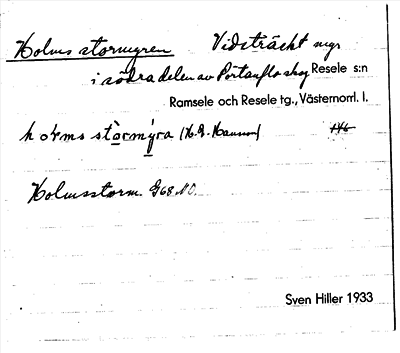 Holms stormyren Vidsträckt myr
i södra delen av Portanfloskog Resele s:n
Ramsele och Resele tg., Västernorrl. l.
hoƚms stormýra
146
Holmsstorm. G68 NO.
Sven Hiller 1933